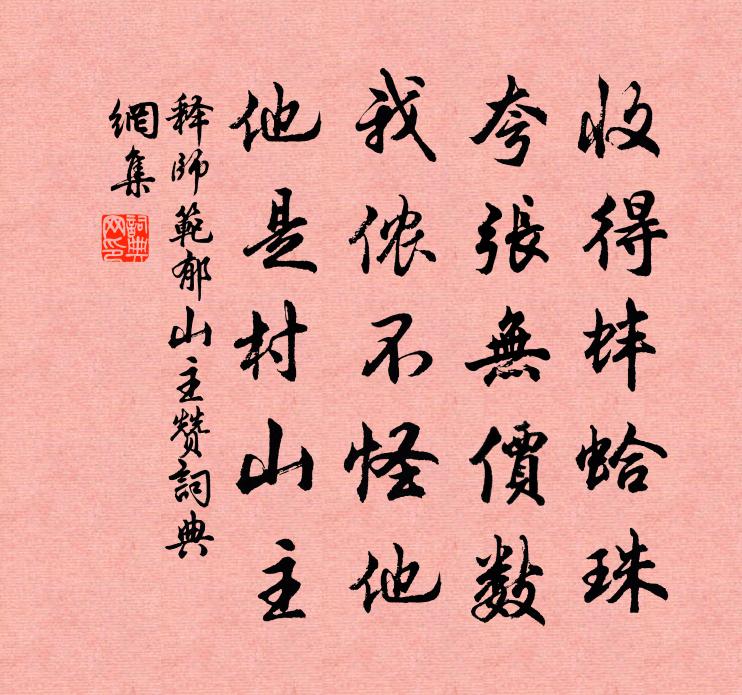 收得蚌蛤珠
夸張無價數
我侬不怪他
他是村山主
释師範郁山主赞詞典
網集
詞典網印